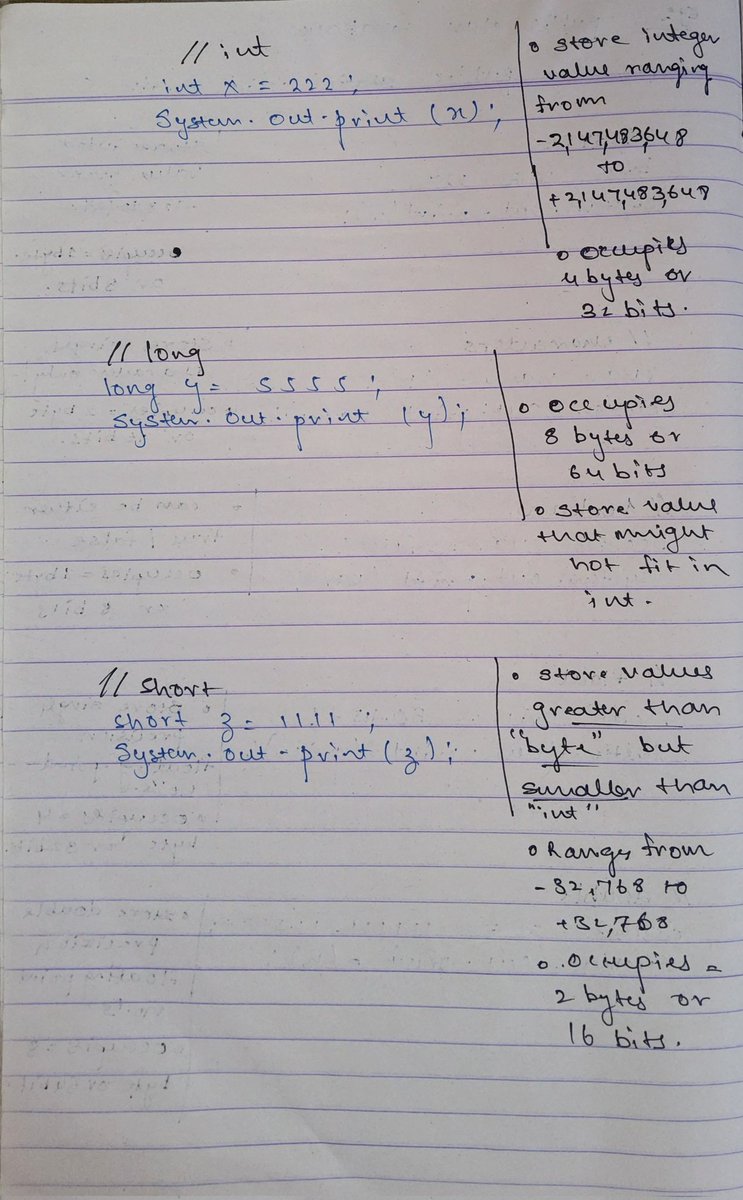 // int
int x = 222 ;
System. out.print (x);
• store integer
value ranging
from
-2,147,483,648
to
+2,147,483,648
• occupies
4 bytes or
32 bits.
// long
long y = 5555 ;
System. out. print (y);
• occupies
8 bytes or
64 bits
• store value
that might
not fit in
int.
// short
short z = 1111 ;
System. out - print (z);
• store values
greater than
"byte" but
smaller than
"int"
• Ranges from
-32,768 to
+32,768
• occupies =
2 bytes or
16 bits.